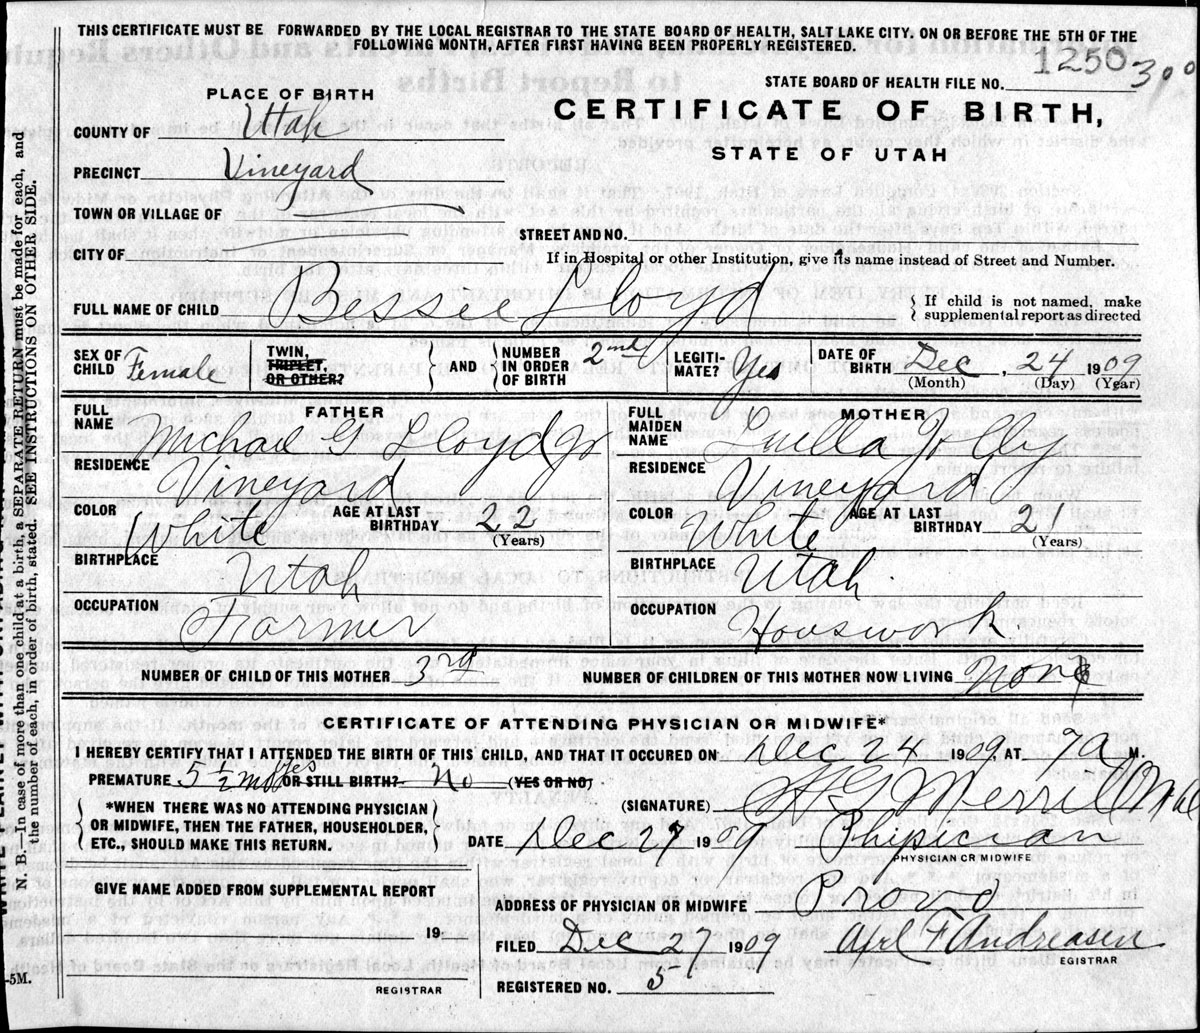 THIS CERTIFICATE MUST BE FORWARDED BY THE LOCAL REGISTRAR TO THE STATE BOARD OF HEALTH, SALT LAKE CITY. ON OR BEFORE THE 5TH OF THE
FOLLOWING MONTH, AFTER FIRST HAVING BEEN PROPERLY REGISTERED.
STATE BOARD OF HEALTH FILE NO. 1250
PLACE OF BIRTH
CERTIFICATE OF BIRTH,
COUNTY OF Utah
STATE OF UTAH
PRECINCT Vineyard
TOWN OR VILLAGE OF
STREET AND NO.
CITY OF
If in Hospital or other Institution, give its name instead of Street and Number.
FULL NAME OF CHILD Bessie Lloyd
{ If child is not named, make
supplemental report as directed
SEX OF CHILD Female
TWIN, TRIPLET, OR OTHER? } AND { NUMBER IN ORDER OF BIRTH 2nd
LEGITIMATE? Yes
DATE OF BIRTH Dec, 24 1909
(Month) (Day) (Year)
FATHER
FULL NAME Michael G Lloyd Jr
RESIDENCE Vineyard
COLOR White AGE AT LAST BIRTHDAY 22
(Years)
BIRTHPLACE Utah
OCCUPATION Farmer
MOTHER
FULL MAIDEN NAME Luella Jolley
RESIDENCE Vineyard
COLOR White AGE AT LAST BIRTHDAY 21
(Years)
BIRTHPLACE Utah.
OCCUPATION Housework.
NUMBER OF CHILD OF THIS MOTHER 3rd
NUMBER OF CHILDREN OF THIS MOTHER NOW LIVING None
CERTIFICATE OF ATTENDING PHYSICIAN OR MIDWIFE*
I HEREBY CERTIFY THAT I ATTENDED THE BIRTH OF THIS CHILD, AND THAT IT OCCURED ON Dec 24 1909. AT 7 A M.
PREMATURE 5 1/2 mo yes OR STILL BIRTH? No (YES OR NO)
*WHEN THERE WAS NO ATTENDING PHYSICIAN
OR MIDWIFE, THEN THE FATHER, HOUSEHOLDER,
ETC., SHOULD MAKE THIS RETURN.
(SIGNATURE) H G Merrill M.D.
DATE Dec 27 1909 Physician
PHYSICIAN OR MIDWIFE
GIVE NAME ADDED FROM SUPPLEMENTAL REPORT
19
REGISTRAR
ADDRESS OF PHYSICIAN OR MIDWIFE Provo
FILED Dec 27 1909 F Andreasen
REGISTRAR
REGISTERED NO. 5
-5M.
N. B.—In case of more than one child at a birth, a SEPARATE RETURN must be made for each, and
the number of each, in order of birth, stated. SEE INSTRUCTIONS ON OTHER SIDE.